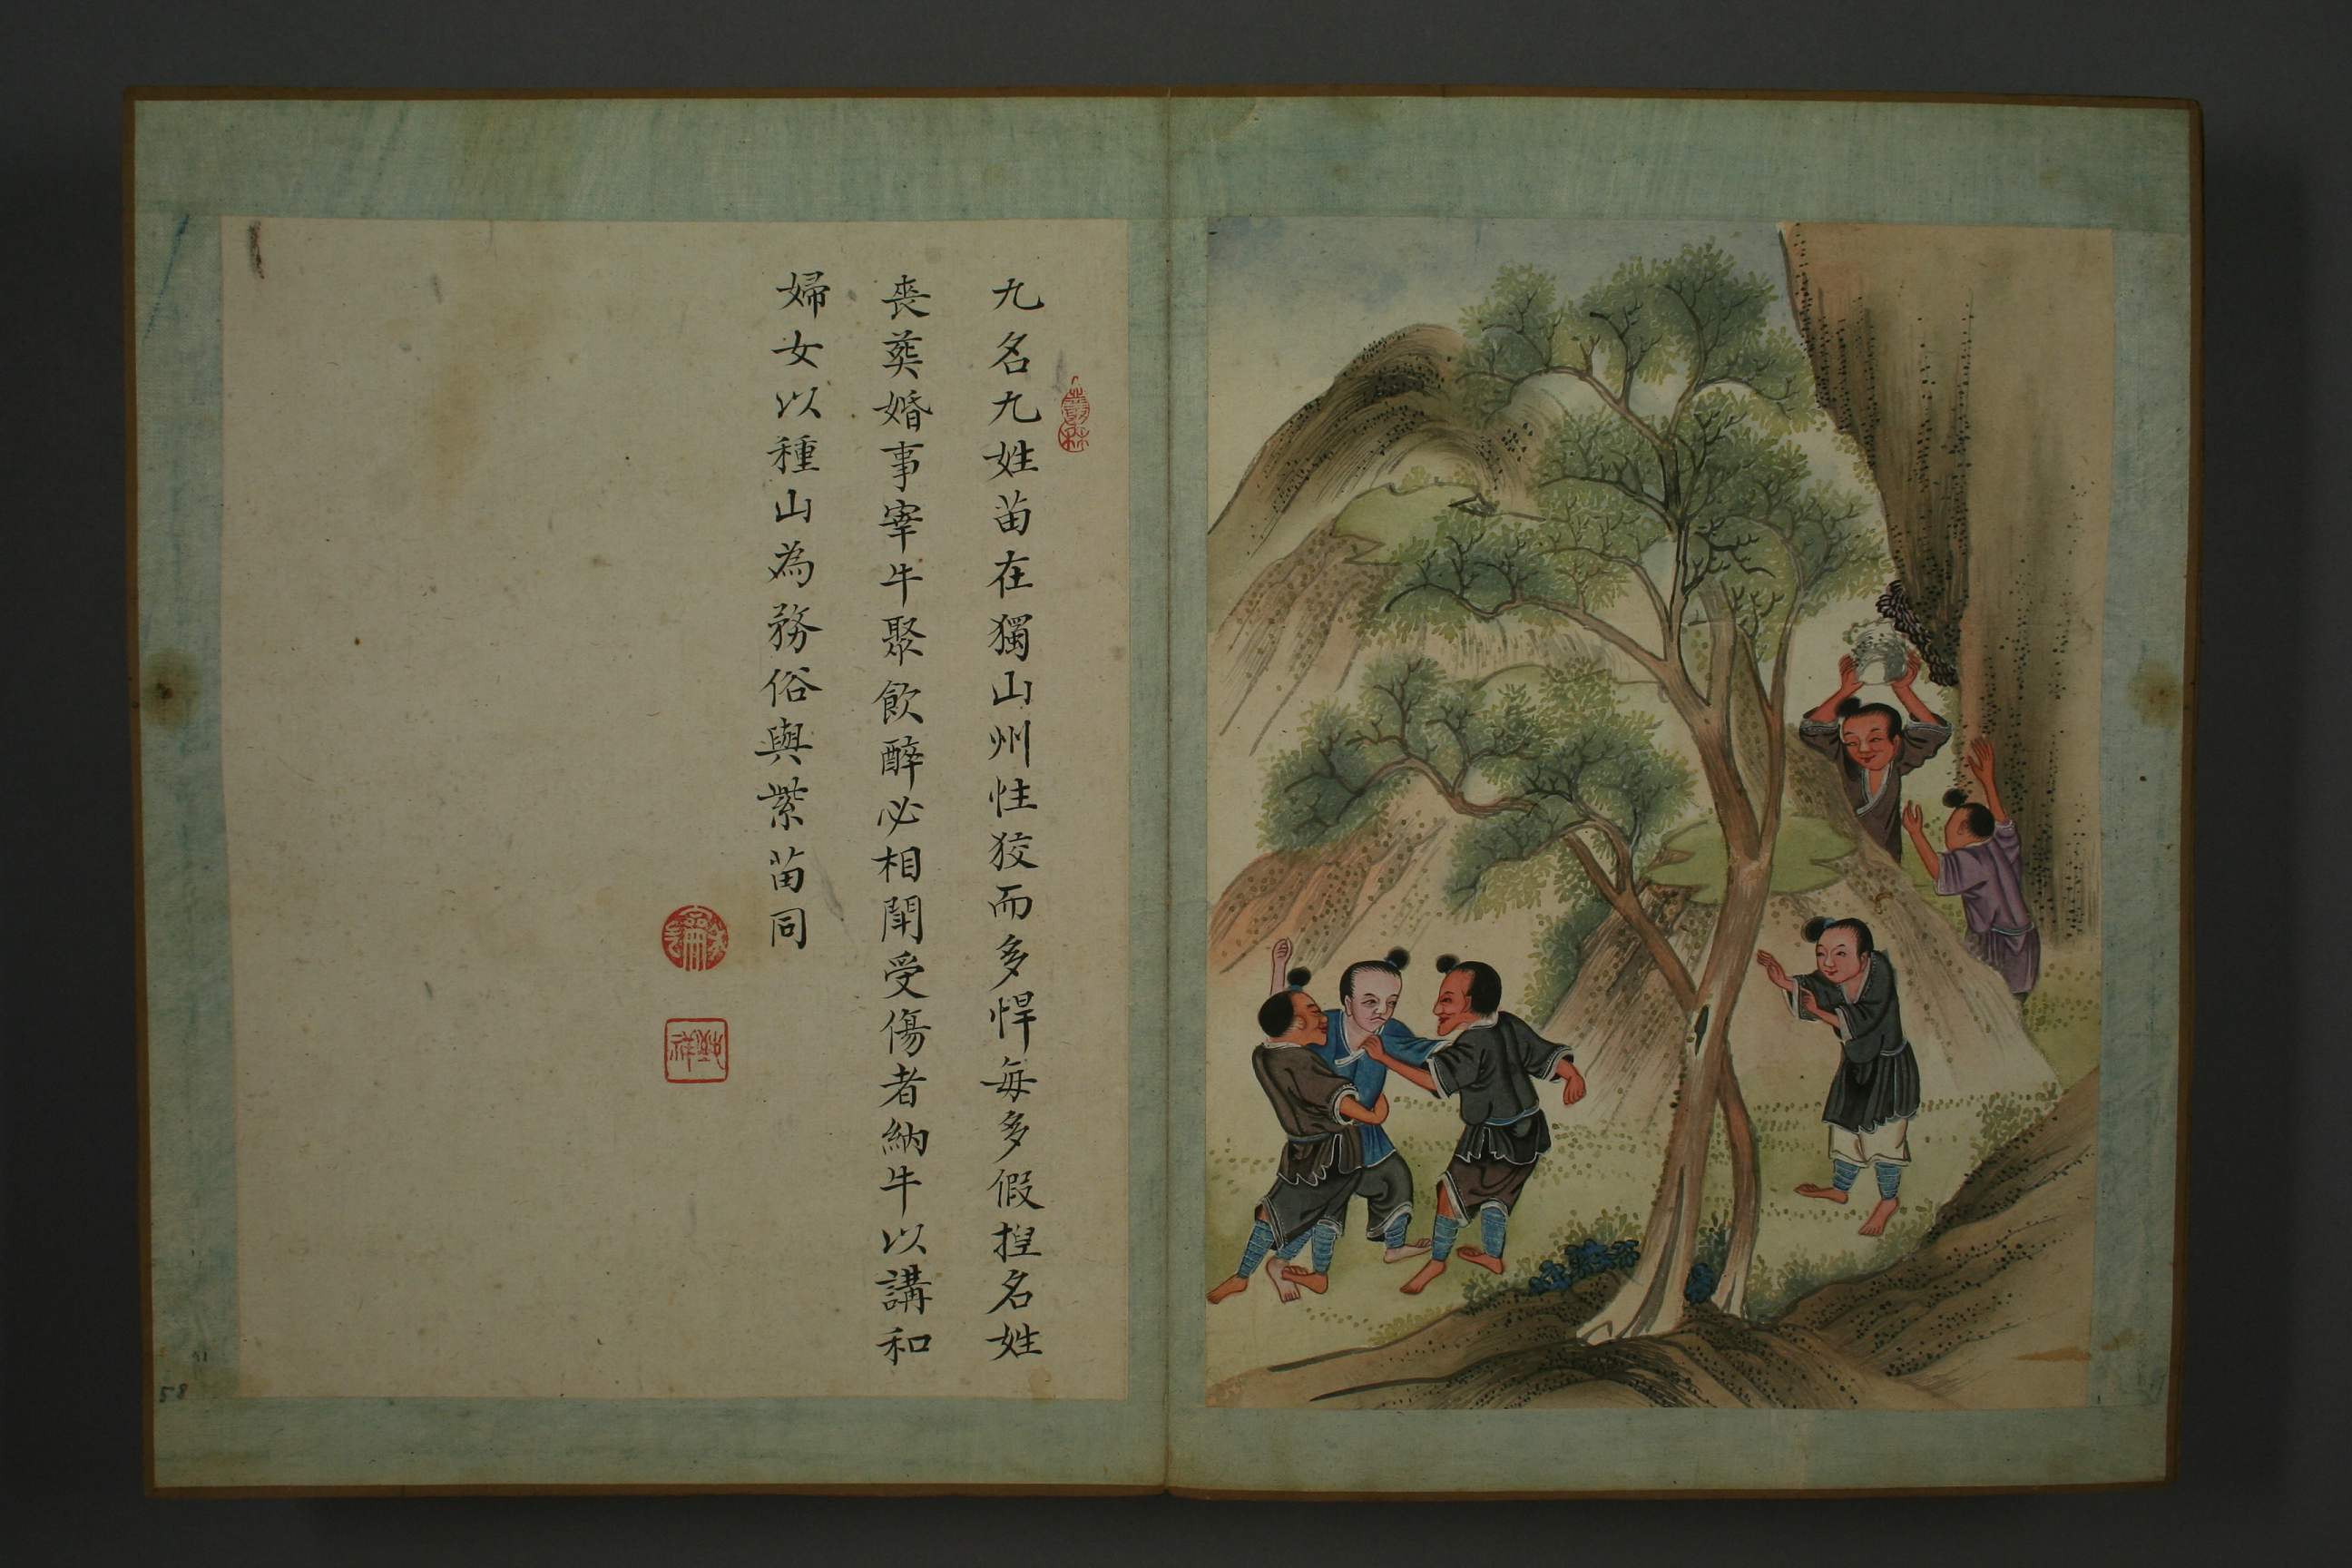 九名九姓苗在獨山州性狡而多悍每多假揑名姓
喪葬婚事宰牛聚飲醉必相鬪受傷者納牛以講和
婦女以種山為務俗與紫苗同
58